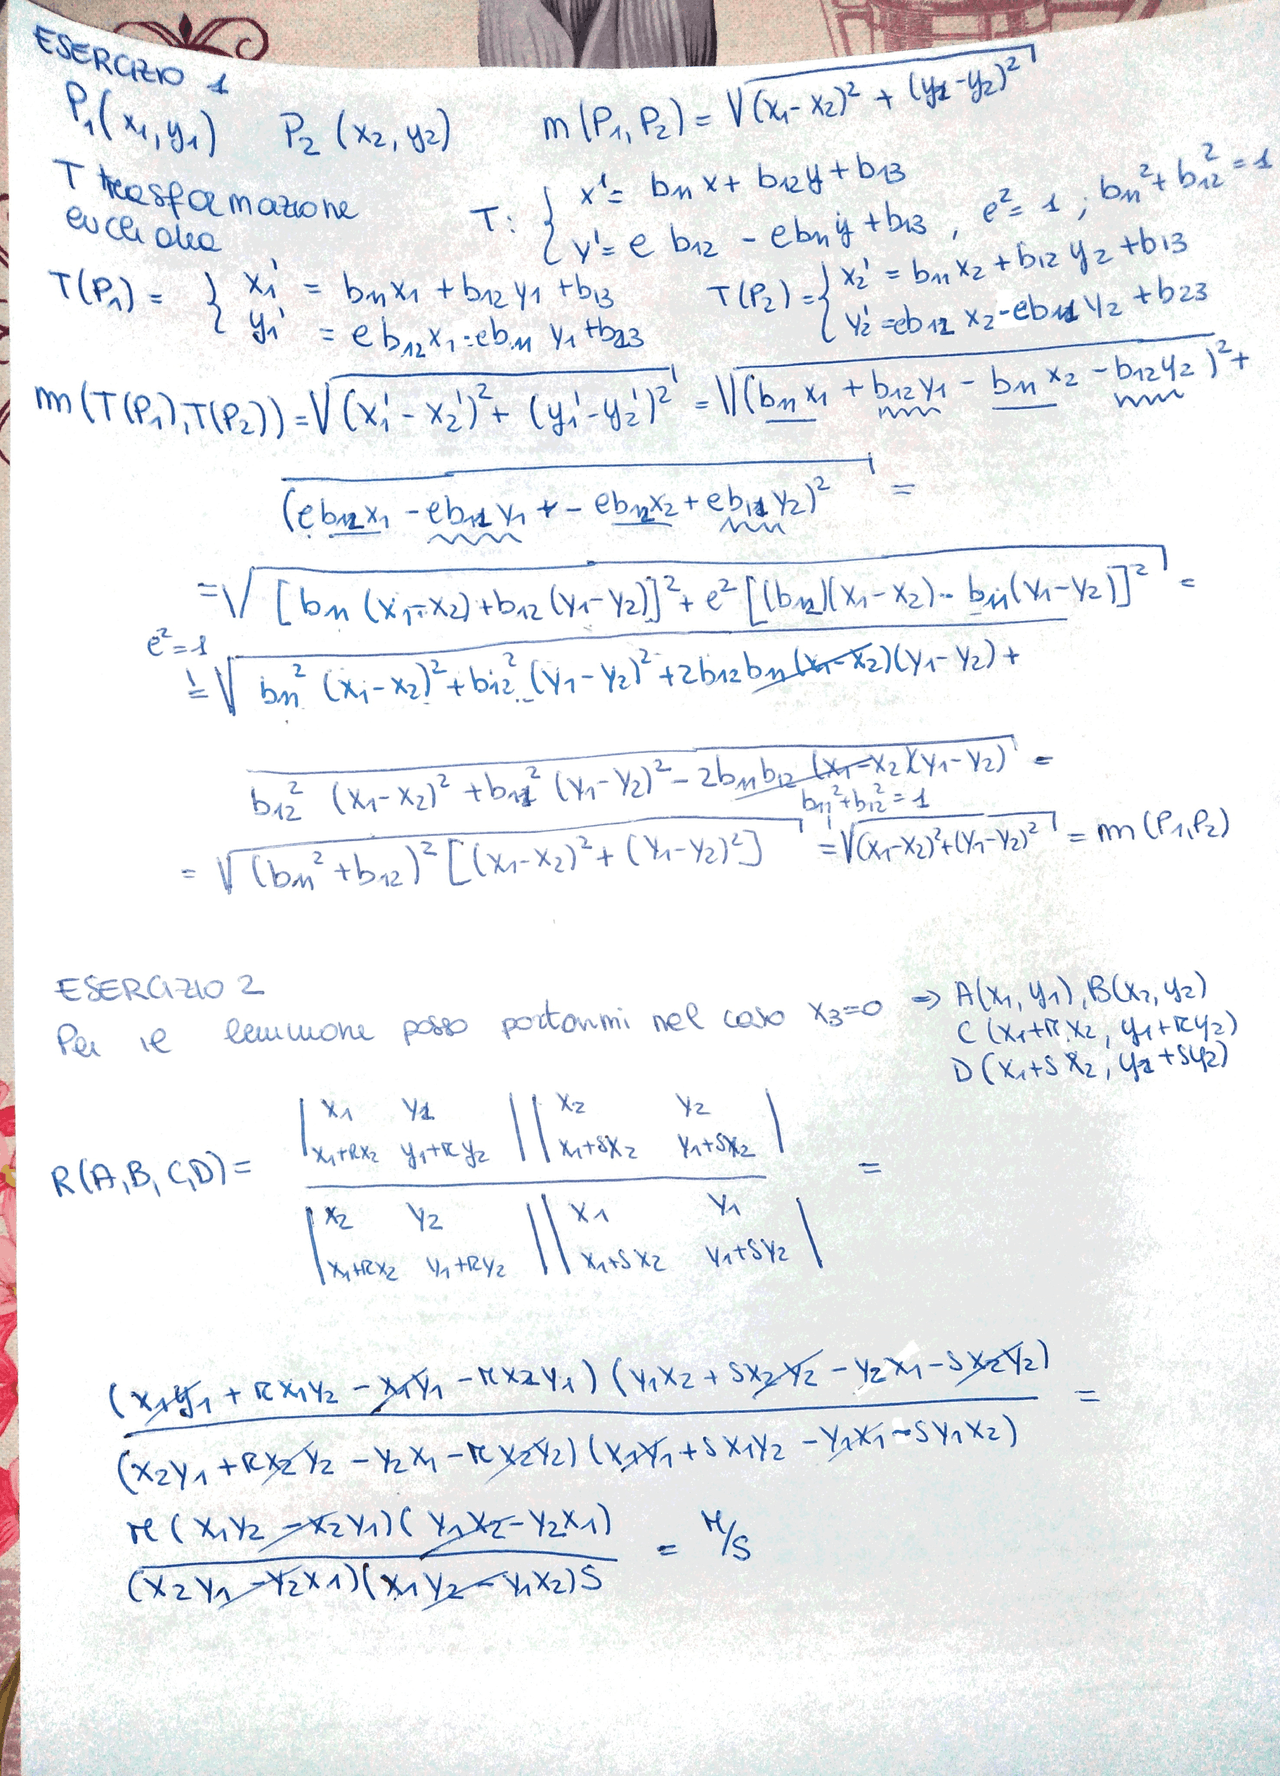 ESERCIZIO 1
P₁(x₁,y₁) P₂(x₂,y₂) m(P₁,P₂)=√((x₁-x₂)²+(y₁-y₂)²)
T trasformazione euclidea T: { x'= b₁₁x+b₁₂y+b₁₃
y'=e b₁₂ - eb₁₁y+b₁₃, e²=1; b₁₁²+b₁₂²=1
T(P₁)= { x₁' = b₁₁x₁+b₁₂y₁+b₁₃ T(P₂)= { x₂' = b₁₁x₂+b₁₂y₂+b₁₃
y₁' = eb₁₂x₁-eb₁₁y₁+b₂₃ y₂'=eb₁₂x₂-eb₁₁y₂+b₂₃
m(T(P₁),T(P₂))=√((x₁'-x₂')²+(y₁'-y₂')²) =√((b₁₁x₁+b₁₂y₁-b₁₁x₂-b₁₂y₂)²+
(eb₁₂x₁-eb₁₁y₁+-eb₁₂x₂+eb₁₁y₂)² =
=√([b₁₁(x₁-x₂)+b₁₂(y₁-y₂)]²+e²[(b₁₂)(x₁-x₂)-b₁₁(y₁-y₂)]² =
e²=1
=√(b₁₁²(x₁-x₂)²+b₁₂²(y₁-y₂)²+2b₁₂b₁₁(x₁-x₂)(y₁-y₂)+
b₁₂²(x₁-x₂)²+b₁₁²(y₁-y₂)²-2b₁₁b₁₂(x₁-x₂)(y₁-y₂) =
b₁₁²+b₁₂²=1
=√((b₁₁²+b₁₂)²[(x₁-x₂)²+(y₁-y₂)²]) =√((x₁-x₂)²+(y₁-y₂)²) = m(P₁,P₂)
ESERCIZIO 2
Per il lemmone posso portarmi nel caso x₃=0 ⇒ A(x₁,y₁),B(x₂,y₂)
C(x₁+rx₂, y₁+ry₂)
D(x₁+sx₂, y₁+sy₂)
x₁ y₁ | | x₂ y₂
x₁+rx₂ y₁+ry₂ | | x₁+sx₂ y₁+sx₂
R(A,B,C,D)= =
x₂ y₂ | | x₁ y₁
x₁+rx₂ y₁+ry₂ | | x₁+sx₂ y₁+sy₂
(x₁y₁+rx₁y₂-x₁y₁-rx₂y₁)(y₁x₂+sx₂y₂-y₂x₁-sx₂y₂) =
(x₂y₁+rx₂y₂-y₂x₁-rx₂y₂)(x₁y₁+sx₁y₂-y₁x₁-sy₁x₂)
r(x₁y₂-x₂y₁)(y₁x₂-y₂x₁) = r/s
(x₂y₁-y₂x₁)(x₁y₂-y₁x₂)s